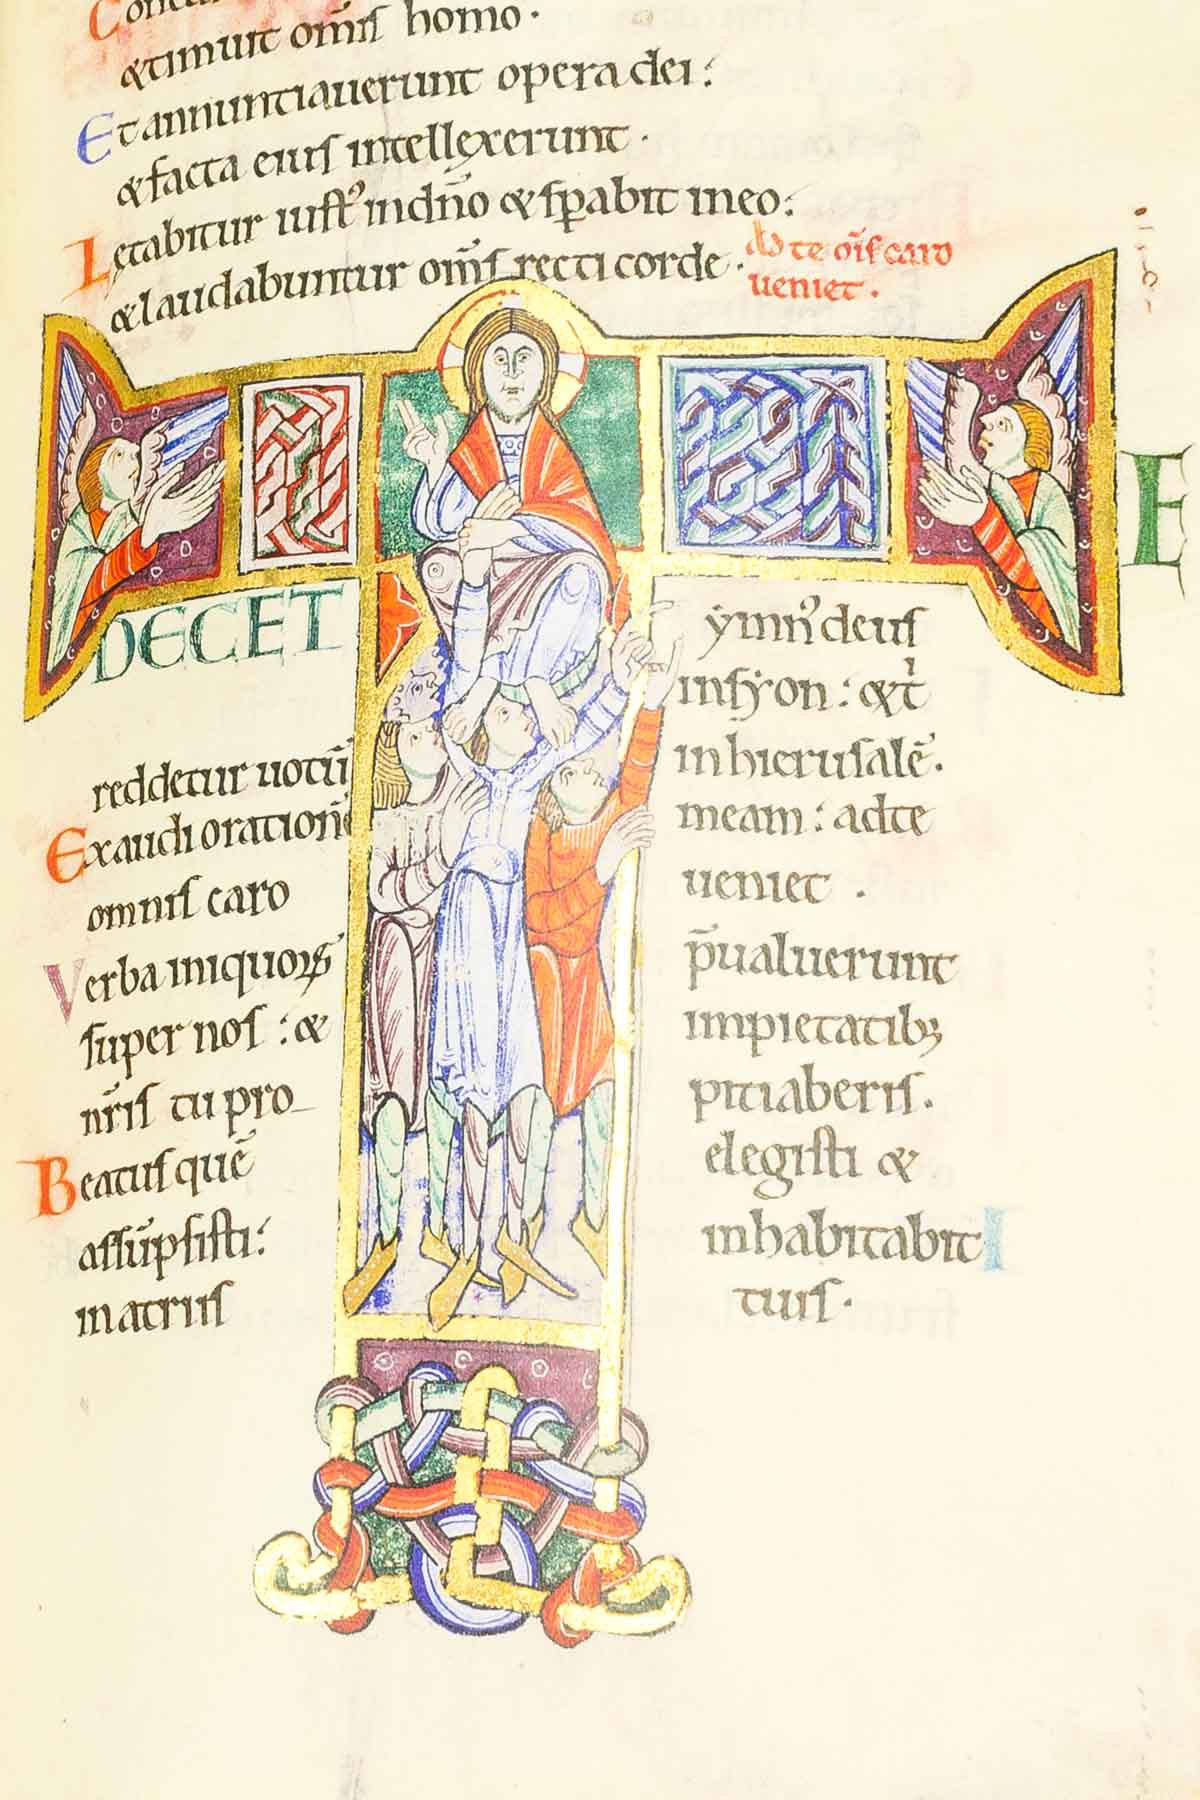 &timuit om̄iſ homo ·
Et annuntiauerunt opera dei :
& facta eiuſ intellexerunt ·
Lętabitur iuſt᾽ indn̄o & ſꝑabit ineo :
& laudabuntur om̄ſ recti corde ·
Ad te om̄iſ caro
ueniet ·
T E
DECET ẏmn᾽ deuſ
inſẏon : & tⁱ
reddetur uotū inhieruſalē ·
Exaudi orationē meam : adte
omniſ caro ueniet ·
Verba iniquoꝝ p̄ualuerunt
ſuper noſ : & impietatibꝫ
nr̄iſ tu pro pitiaberiſ ·
Beatuſ quē elegiſti &
aſſūpſiſti : inhabitabit I
inatriiſ tuiſ ·